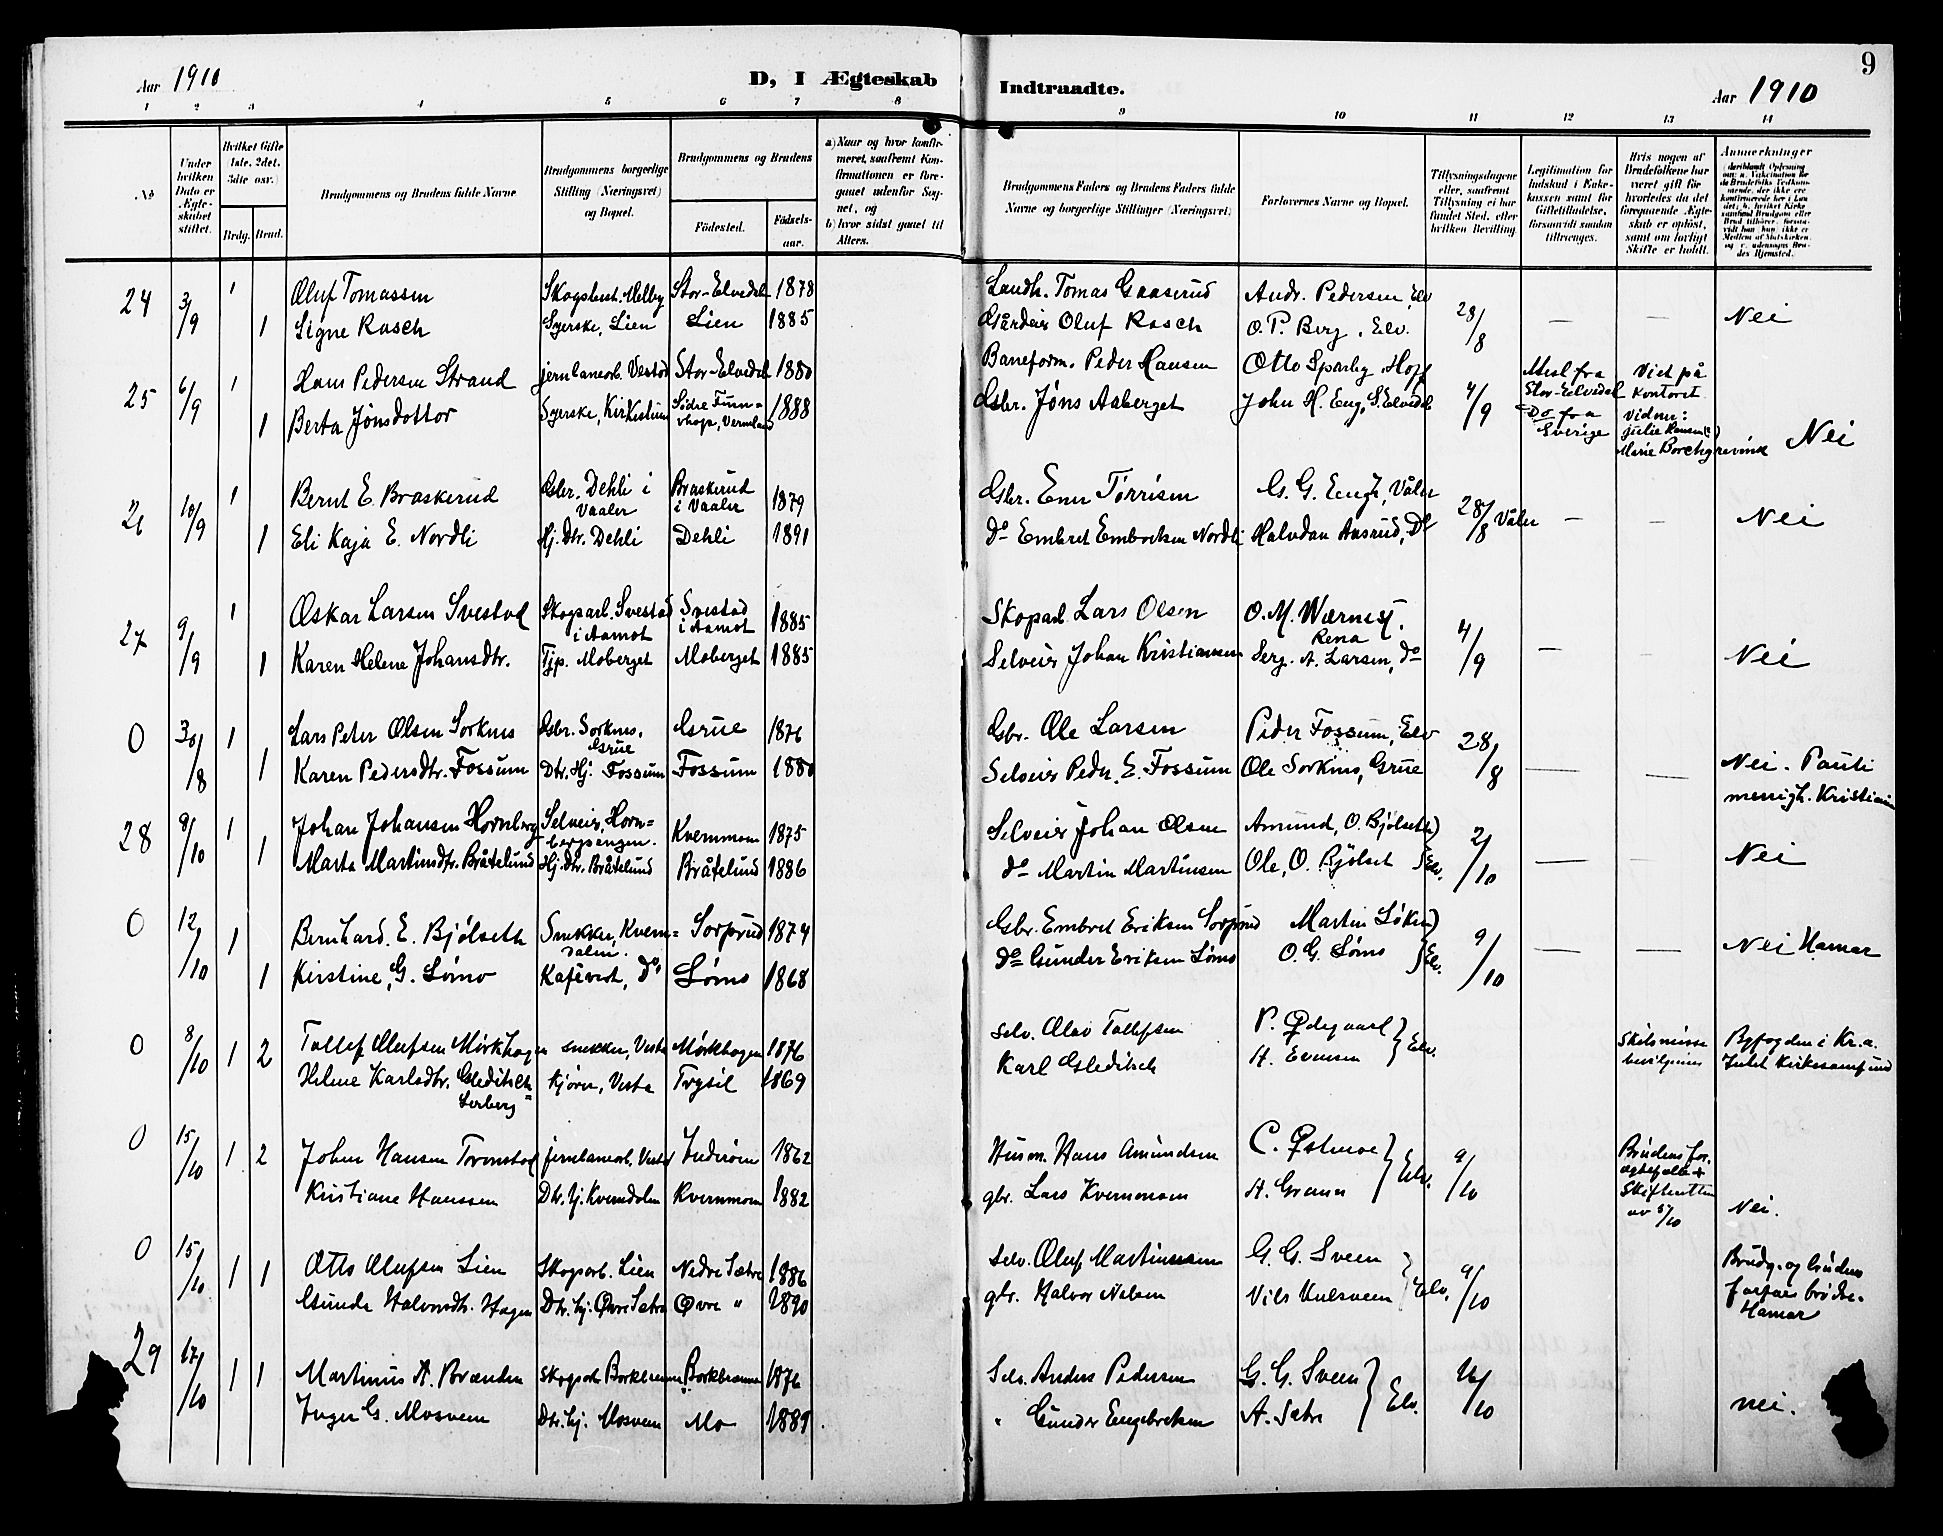 Aar 1910
D, I Ægteskab
Indtraadte.
Aar 1910
9
1 2 3 4 5 6 7 8 9 10 11 12 13 14
No
Under hvilken Dato er Ægteskabet stiftet.
Hvilket Gifte (1ste, 2det, 3die osv.)
Brdg. Brud.
Brudgommens og Brudens fulde Navne
Brudgommens borgerlige Stilling (Næringsvei) og Bopæl.
Brudgommens og Brudens
Fødested.
Fødselsaar.
a) Naar og hvor konfirmeret, saafremt Konfirmationen er foregaaet udenfor Sognet, og
b) hvor sidst gaaet til Alters.
Brudgommens Faders og Brudens Faders fulde Navne og borgerlige Stillinger (Næringsvei)
Forlovernes Navne og Bopæl.
Tillysningsdagene eller, saafremt Tillysning ei har fundet Sted, efter hvilken Bevilling
Legitimation for Indskud i Enkekassen samt for Giftetilladelse, forsaavidt saadan tiltrænges.
Hvis nogen af Brudefolkene har været gift før hvorledes da det foregaaende Ægteskab er opløst, samt om lovligt Skifte er holdt.
Anmerkninger
24 3/9 1 Oluf Tomassen Skogsbest. Melby Stor-Elvedal 1878 Landh. Tomas Gaaserud Andr. Pedersen, Elv 28/8 — — Nei
1 Signe Rasch Syerske, Lien Lien 1885 Gårdeier Oluf Rasch O. P. Berg, Elv.
25 6/9 1 Hans Pedersen Strand jernbanearb. Vestad Stor-Elvedal 1880 Baneform. Peder Hansen Otto Sparby, Hoff 4/9 Mesl fra Stor-Elvedal Do fra Sverige Viet på kontoret Vidner: Julie Hansen Marie Borchgrevink Nei
1 Berta Jønsdotter Syerske, Kirkestuen Södre Finnskoga, Vermland 1888 Gbr. Jöns Aaberget John H. Eng, S. Elvedal
26 10/9 1 Bernt E. Braskerud Gbr. Dehli i Vaaler Braskerud i Vaaler 1879 Gbr. Ener Torrisen G. G. Engh, Våler 28/8 Våler — — Nei
1 Eli Kaja E. Nordli Hj. Dtr. Dehli Dehli 1891 Do Embret Embretsen Nordli Halvdan Aasrud, Do
27 9/9 1 Oskar Larsen Svestad Skogsarb. Svestad i Aamot Svestad i Aamot 1885 Skogsarb Lars Olsen O. M. Wærnes, Rena 4/9 — Nei
1 Karen Helene Johansdtr. Tjp. Moberget Moberget 1885 Selveier Johan Kristiansen Serg. A. Larsen, do
0 30/8 1 Lars Peter Olsen Sorknes Gbr. Sorknes, Grue Grue 1876 Gbr. Ole Larsen Peder Fossum, Elv 28/8 — — Nei. Pauli menigh. Kristiania
1 Karen Pedersdtr. Fossum Dtr. Hj. Fossum Fossum 1880 Selveier Peder E. Fossum Ole Sorknes, Grue
28 9/10 1 Johan Johansen Hornberg Selveier, Hornbergsengen. Kvernmoen 1875 Selveier Johan Olsen Amund, O. Bjølset 2/10 — Nei
1 Marta Martinsdtr. Bråtelund Hj. Dtr. Bråtelund Bråtelund 1886 do Martin Martinsen Ole, O. Bjölset Elv.
0 12/10 1 Bernhard. E. Bjølseth Snekker, Kverndalen. Sorperud 1874 Gbr. Embret Eriksen Martin Löken 9/10 — — Nei Hamar
1 Kirstine, G. Lömo Kafévert, Do Lömo 1868 do Gunder Eriksen Lömo O. G. Lömo Elv.
0 8/10 1 2 Tollef Olufsen Mörkhagen snekker, Vesta Mørkhagen 1876 selv. Olav Tollefsen P. Ødegaard Elv. Skilsmisse Byfogden i Kr.a.
Helene Karlsdtr. Gleditsch Trysil 1869 Karl Gleditsch H. Evensen Intet kirkesamfund
0 15/10 1 2 Johan Hansen jernbanearb. Vestad Inderöien 1862 Husm. Hans Amundsen C. Østmoe Elv. 9/10 Brudens for. ægtefælle + Skifteretten av 5/10 Nei.
Kristiane Hanssen Dtr. hj. Kverndalen Kvernmoen 1882 gbr. Lars Kvernmoen H. Grann
0 15/10 1 1 Otto Olufsen Lien Skogarb. Lien Nedre Sætre 1886 selv. Oluf Martinussen G. G. Sveen Elv. 9/10 Brudg. og brudens farfar brødre. Hamar
Gunda Halvorsdtr. Hagen Dtr. hj. Øvre Sætre Øvre " 1890 gbr. Halvor Nilsen Nils Kulsveen
29 17/10 1 1 Martinus A. Brænden Skogarb Borkbrænnen Borkbrænnen 1876 Selv. Anders Pedersen G. G. Sveen Elv. 16/10 nei.
Inger G. Mosveen Dtr. hj. Mosveen Mo 1889 " Gunder Engebretsen A. Sætre